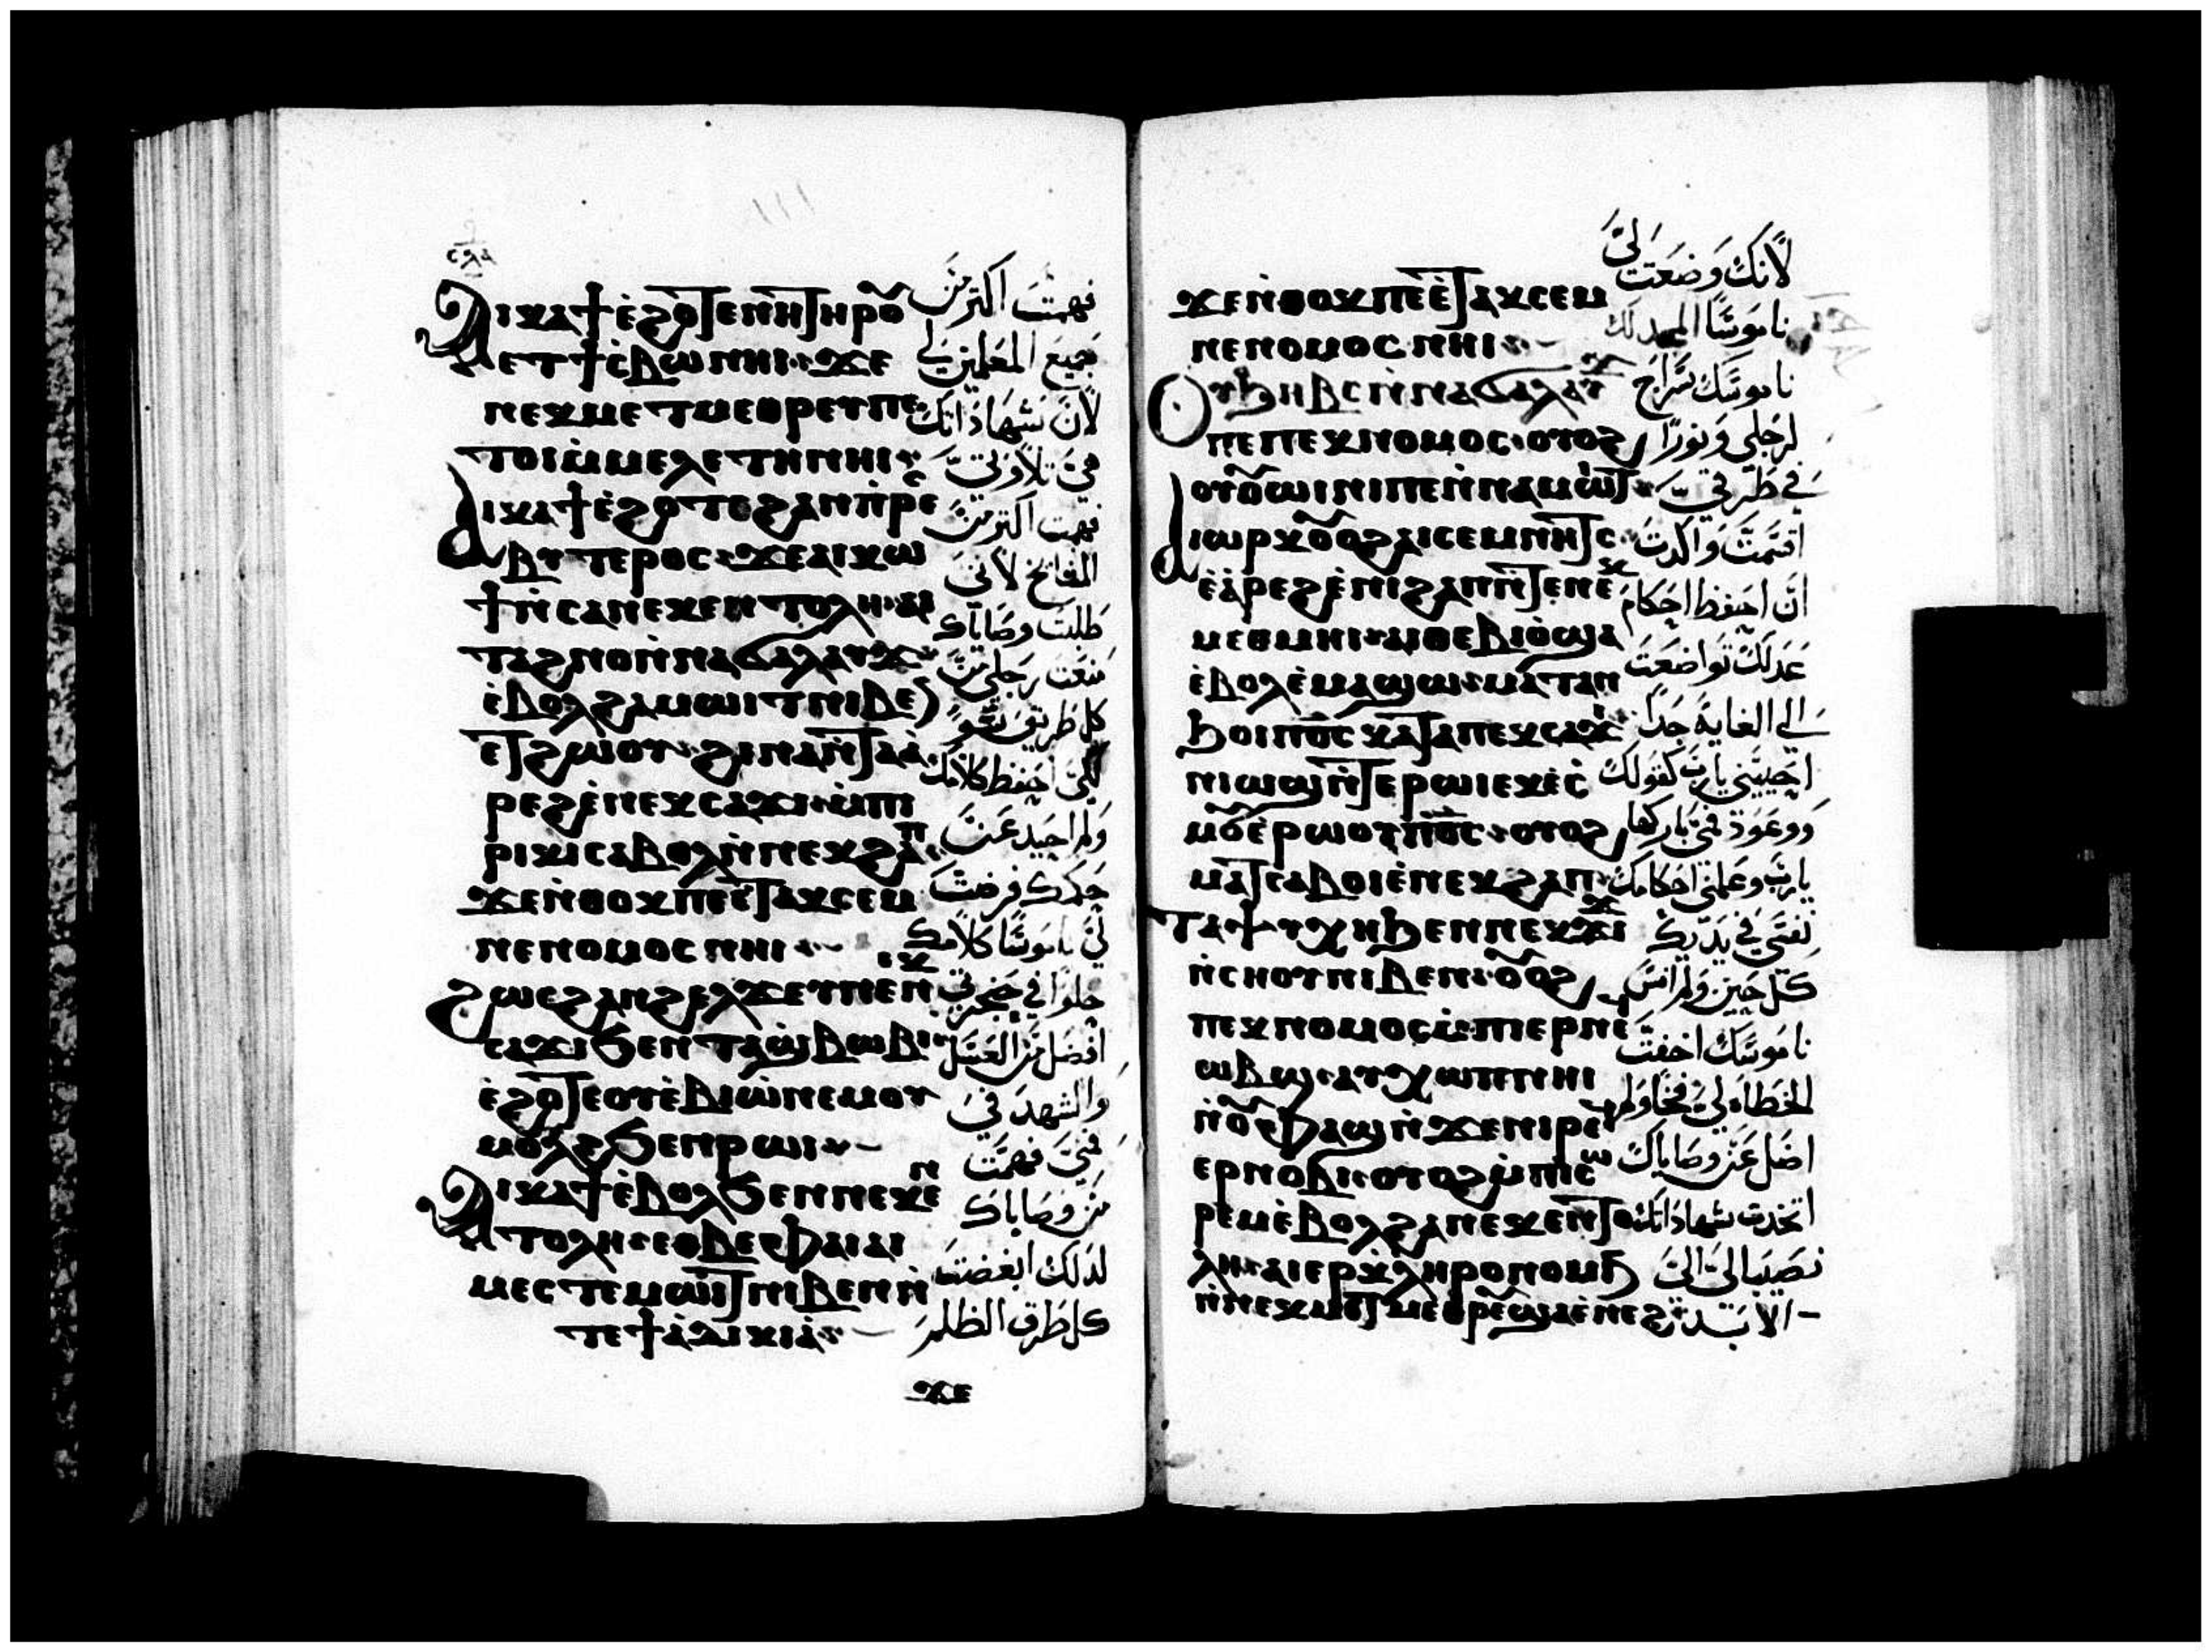 ⲥⲗⲁ
ⲁⲓⲕⲁϯ ⲉ̇ϩⲟ̄ⲧⲉ ⲛⲏⲧⲏⲣⲟ̄ⲩ
ⲉⲧϯⲥⲃⲱ ⲛⲏⲓ ϫⲉ
ⲛⲉⲕⲙⲉⲧⲙⲉⲑⲣⲉⲩ ⲡⲉ
ⲧⲟⲓ ⲙ̇ⲙⲉⲗⲉⲧⲏ ⲛⲏⲓ
ⲁⲓⲕⲁϯ ⲉ̇ϩⲟⲧⲉ ϩⲁⲛ ⲡ̇ⲣⲉⲥ
ⲃⲩⲧⲉⲣⲟⲥ ϫⲉ ⲁⲓⲕⲱ
ϯ ⲛ̇ⲥⲁ ⲛⲉⲕⲉⲛⲧⲟⲗⲏ ⲁⲓ
ⲧⲁϩⲛⲟ ⲛ̇ⲛⲁϭⲁⲗⲁⲩϫ
ⲉ̇ⲃⲟⲗ ϩⲁ ⲙⲱⲓⲧ ⲛⲓⲃⲉⲛ
ⲉⲧϩⲱⲟⲩ ϩⲓⲛⲁ ⲛ̇ⲧⲁⲁ̇
ⲣⲉϩ ⲉ̇ⲛⲉⲕⲥⲁϫⲓ ⲙ̇ⲡⲓ
ⲣⲓⲕⲓ ⲥⲁⲃⲟⲗ ⲛ̇ⲛⲉⲕϩⲁⲡ
ϫⲉ ⲛ̇ⲑⲟⲕ ⲡⲉ ⲉ̇ⲧⲁⲕⲥⲉⲙ
ⲛⲉ ⲛⲟⲙⲟⲥ ⲛⲏⲓ
ϩⲱⲥ ϩⲁⲛϩⲉⲗϫⲉⲩ ⲛⲉ ⲛⲉⲕ
ⲥⲁϫⲓ ϧⲉⲛ ⲧⲁϣⲃⲱⲃⲓ
ⲉ̇ϩⲟ̄ⲧⲉ ⲟⲩⲉ̇ⲃⲓⲱ̇ ⲛⲉⲙ ⲟⲩ
ⲙⲟⲗϩ ϧⲉⲛ ⲣⲱⲓ
ⲁⲓⲕⲁϯ ⲉ̇ⲃⲟⲗϧⲉⲛ ⲛⲉⲕⲉⲛ
ⲧⲟⲗⲏ ⲉⲑⲃⲉ ⲫⲁⲓ ⲁⲓ
ⲙⲉⲥⲧⲉ ⲙⲱⲓⲧ ⲛⲓⲃⲉⲛ ⲛ̇
ⲧⲉ ϯⲁ̇ⲇⲓⲕⲓⲁ̇
ϫⲉ
فهمت اكتر من
جميع المعلمين لي
لأن شهاداتك
هي تلاوتي
فهمت اكتر من
المشايخ لأنني
طلبت وصاياك
منعت رجلي من
كل طريق سو
لكي احفظ كلامك
ولم احيد عن
حكمك فرضت
لي ناموسا كلامك
حلوا في حنجرتي
افضل من العسل
والشهد في
فمي فهمت
من وصاياك
لدلك ابغضت
كل طرق الظلم
ϫⲉ ⲛ̇ⲑⲟⲕ ⲡⲉ ⲉ̇ⲧⲁⲕⲥⲉⲙ
ⲛⲉ ⲛⲟⲙⲟⲥ ⲛⲏⲓ
ⲟⲩϧⲏⲃⲥ ⲛ̇ⲛⲁϭⲁⲗⲁⲩϫ
ⲡⲉ ⲡⲉⲕⲛⲟⲙⲟⲥ ⲟⲩⲟϩ
ⲟⲩⲟ̄ⲱⲓⲛⲓ ⲡⲉ ⲛ̇ⲛⲁⲙⲱⲓⲧ
ⲁⲓⲱⲣⲕ ⲟ̄ⲟϩ ⲁⲓⲥⲉⲙⲛⲏⲧⲥ
ⲉ̇ⲁ̇ⲣⲉϩ ⲉ̇ⲛⲓϩⲁⲡ ⲛ̇ⲧⲉ ⲧⲉⲕ
ⲙⲉⲑⲙⲏⲓ ⲁⲓⲑⲉⲃⲓⲟ̇ ϣⲁ
ⲉ̇ⲃⲟⲗ ⲉ̇ⲙⲁϣⲱ ⲙⲁⲧⲁⲛ
ϧⲟⲓ ⲡⲟ̄ⲥ ⲕⲁⲧⲁ ⲡⲉⲕⲥⲁϫⲓ
ⲛⲓϣⲱϣ ⲛ̇ⲧⲉ ⲣⲱⲓ ⲉⲕⲉ̇ⲥ
ⲙⲟ̄ⲩ ⲉ̇ⲣⲱⲟⲩ ⲡⲟ̄ⲥ ⲟⲩⲟϩ
ⲙⲁⲧⲥⲁⲃⲟⲓ ⲉ̇ⲛⲉⲕϩⲁⲡ
ⲧⲁⲯⲩⲭⲏ ϧⲉⲛ ⲛⲉⲕϫⲓϫ
ⲛ̇ⲥⲏⲟⲩ ⲛⲓⲃⲉⲛ ⲟ̄ⲟϩ
ⲡⲉⲕⲛⲟⲙⲟⲥ ⲙ̇ⲡⲓⲉⲣⲡⲉϥ
ⲱⲃϣ ⲁⲩⲭⲱⲡ ⲛⲏⲓ
ⲛ̇ⲟ̄ⲩⲫⲁϣ ⲛ̇ϫⲉ ⲛⲓⲣⲉϥ
ⲉⲣⲛⲟⲃⲓ ⲟⲩⲟϩ ⲙ̇ⲡⲓⲥⲱ
ⲣⲉⲙ ⲉ̇ⲃⲟⲗ ϩⲁ ⲛⲉⲕⲉⲛⲧⲟ
ⲗⲏ ⲁⲓⲉⲣⲕⲗⲏⲣⲟⲛⲟⲙⲓⲛ
ⲛ̇ⲛⲉⲕⲙⲉⲧⲙⲉⲑⲣⲉⲩ ϣⲁ ⲉ̇ⲛⲉϩ
لأنك وضعت لي
ناموسا
ناموسك سراج
لرجلي ونورا
في طرقي
اقسمت واكدت
ان احفظ احكام
عدلك تواضعت
الي الغاية جدا
احييني يارب كقولك
ووعود فمي باركها
يارب وعلمني احكامك
نفسي في يديك
كل حين ولم انس
ناموسك اخفت
الخطاه لي فخا ولم
اضل عن وصاياك
اتخدت شهاداتك
نصيبا لي الي
الابد